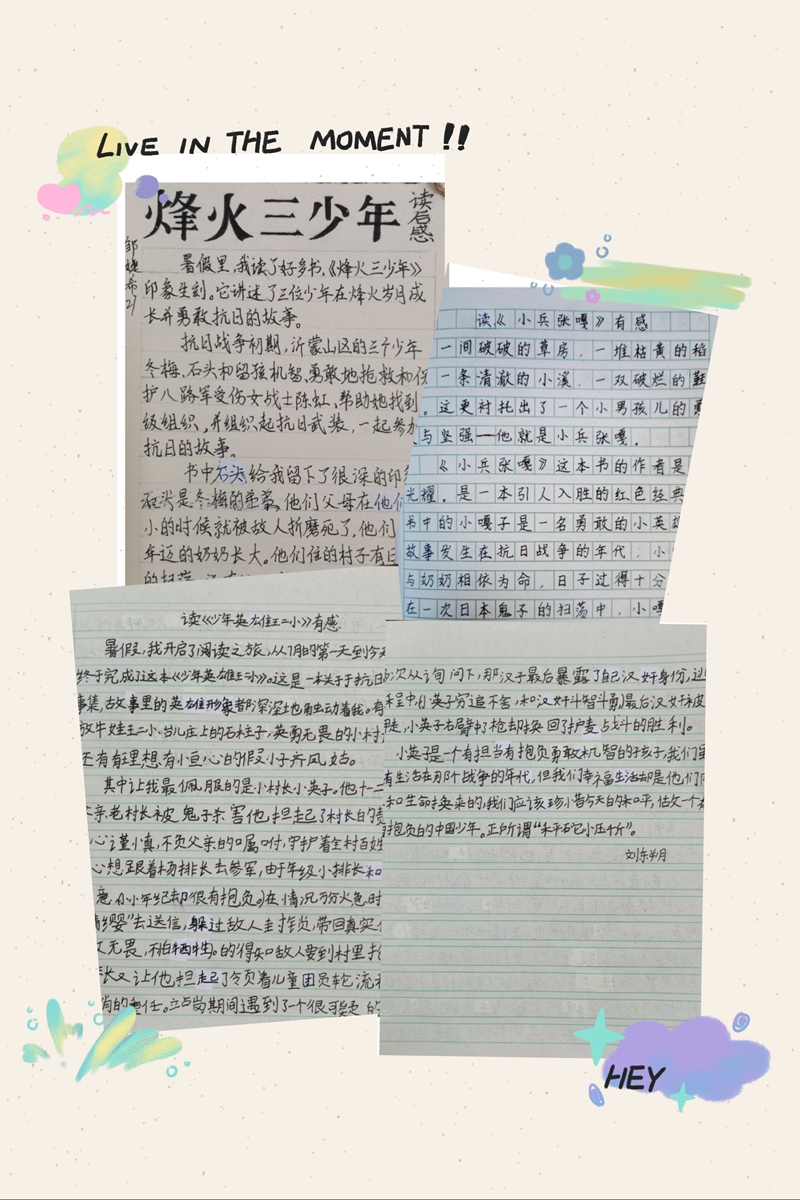 LIVE IN THE MOMENT!!
烽火三少年
读后感
暑假里,我读了好多书,《烽火三少年》
印象生到。它讲述了三位少年在烽火岁月成
长并勇敢抗日的故事。
抗日战争初期,沂蒙山区的三个少年
冬梅、石头和留孩机智、勇敢地抢救和
护八路军受伤女战士陈虹、帮助她找到
级组织,并组织起抗日武装,一起参
抗日的故事。
书中石头给我留下了很深的印
石头是冬梅的 他们父母在他
小的时候就被敌人折磨死了,他们
年迈的奶奶长大。他们住的村子有
读《小兵张嘎》有感
一间破破的草房,一堆枯黄的稻
一条清澈的小溪,一双破烂的鞋
。这更衬托出了一个小男孩儿的
与坚强——他就是小兵张嘎。
《小兵张嘎》这本书的作者是
光耀。是一本引人入胜的红色经典
书中的小嘎子是一名勇敢的小英
故事发生在抗日战争的年代,小
与奶奶相依为命,日子过得十分
在一次日本鬼子的扫荡中,小嘎
读《少年英雄王二小》有感
暑假,我开启了阅读之旅,从7月的第一天到今天
终于完成了这本《少年英雄王二小》。这是一本关于抗日
事集,故事里的英雄形象都深深地 动着我。有
放牛娃王二小、台儿庄上的石柱子,英勇无畏的小村
还有有理想有小恒心的假小子齐风姑。
其中让我最佩服的是小村长小英子。他十二
亲老村长被鬼子杀害他担起了村长的责
心谨小真,不负父亲的嘱咐,守护着全村百姓
心想跟着杨排长去参军,由于年级小排长和
意。(小小年纪却很有抱负。)在情况万分火急时
去送信,躲过敌人 ,带回真实
无畏,不怕牺牲。的得知敌人要到村里
长又让他担起了令页着儿童团员轮流
岗的责任。立占岗期间遇到了一个很可疑的
次从讠旬问下,那汉子最后暴露了自己汉奸身份,逃
程中,(小英子穷追不舍,和汉奸斗智斗勇。)最后汉奸被
,小英子右臂中了枪却换回了护麦占战斗的胜利。
小英子是一个有担当有抱负勇敢机智的子孩子,我们虽
有生活在那个战争的年代,但我们幸福生活却是他们
和生命换来的,我们应该珍惜今天的和平,估攵一个
抱负的中国少年。正所谓“ 小压千斤”。